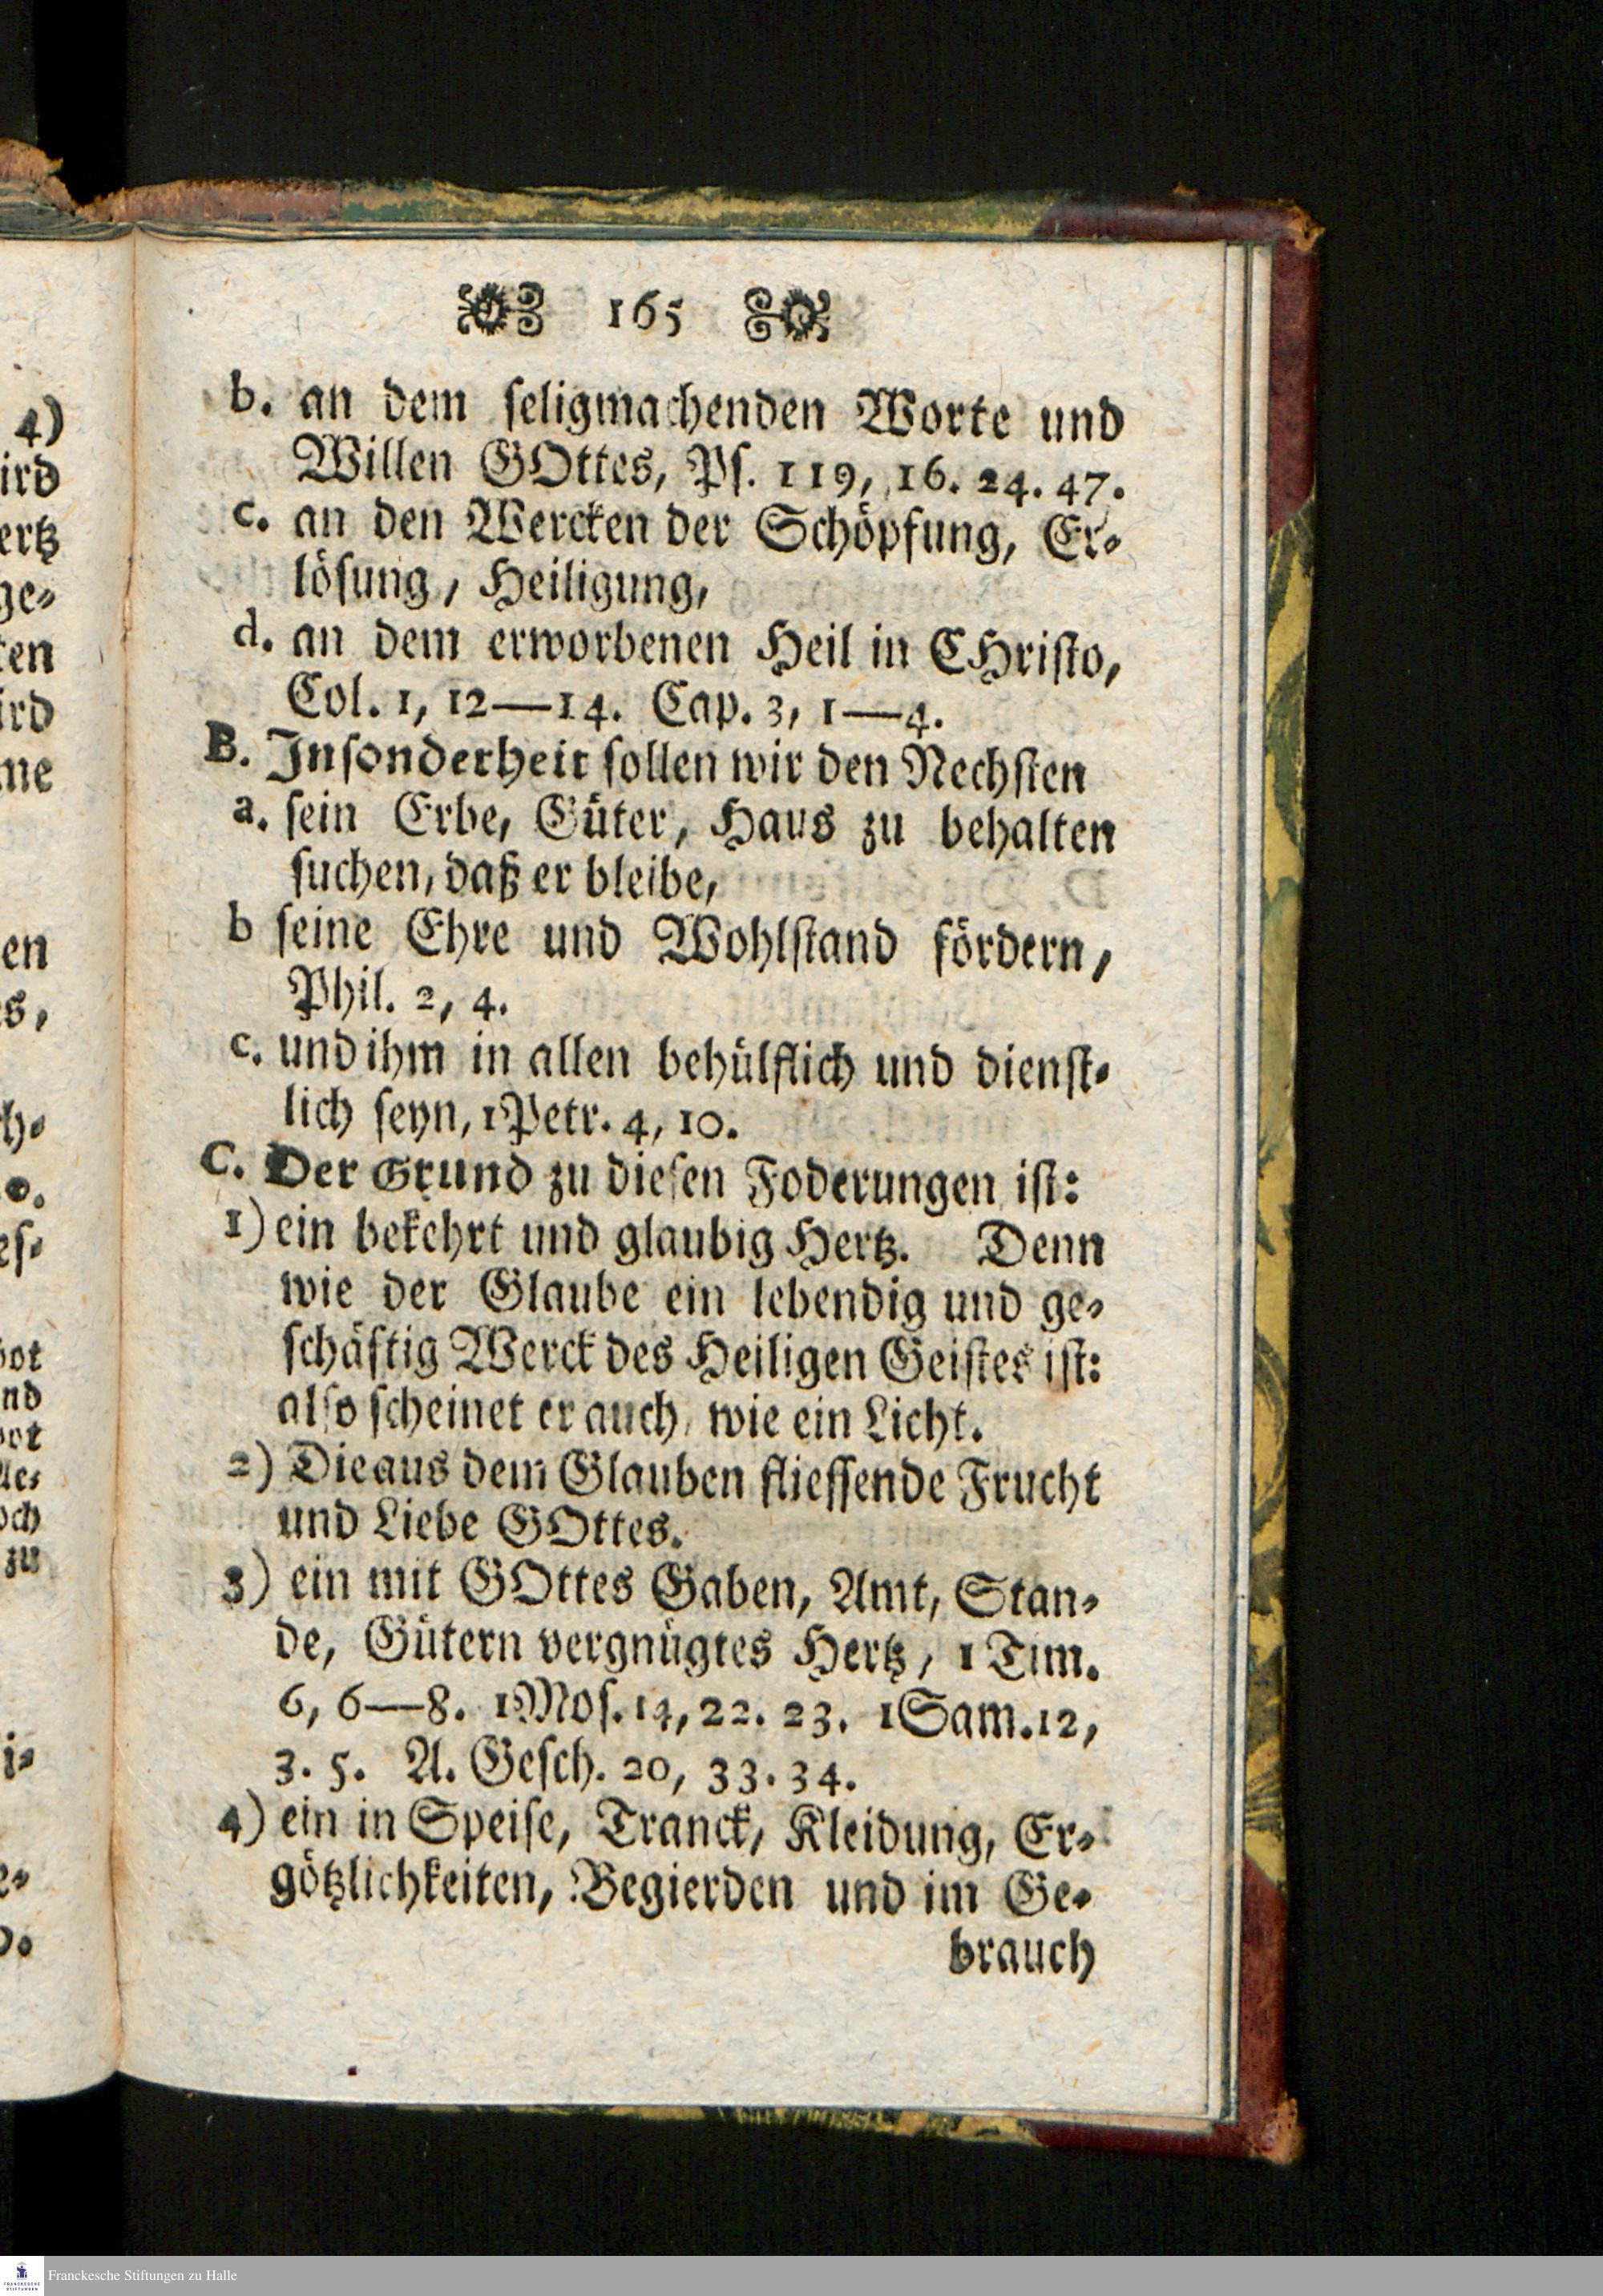 165
b. an dem ſeligmachenden Worte und
Willen GOttes, Pſ. 119, 16. 24. 47.
c. an den Wercken der Schöpfung, Er-
löſung, Heiligung,
d. an dem erworbenen Heil in CHriſto,
Col. 1, 12—14. Cap. 3, 1—4.
B. Inſonderheit ſollen wir den Nechſten
a. ſein Erbe, Güter, Haus zu behalten
ſuchen, daß er bleibe,
b ſeine Ehre und Wohlſtand fördern,
Phil. 2, 4.
c. und ihm in allen behülflich und dienſt-
lich ſeyn, 1Petr. 4, 10.
C. Der Grund zu dieſen Foderungen iſt:
1) ein bekehrt und glaubig Hertz. Denn
wie der Glaube ein lebendig und ge-
ſchäftig Werck des Heiligen Geiſtes iſt:
alſo ſcheinet er auch, wie ein Licht.
2) Die aus dem Glauben flieſſende Frucht
und Liebe GOttes.
3) ein mit GOttes Gaben, Amt, Stan-
de, Gütern vergnügtes Hertz, 1 Tim.
6, 6—8. 1Moſ. 14, 22. 23. 1Sam. 12,
3. 5. A. Geſch. 20, 33. 34.
4) ein in Speiſe, Tranck, Kleidung, Er-
götzlichkeiten, Begierden und im Ge-
brauch
4)
ird
ertz
ge-
ten
ird
me
en
es,
ch-
o.
eſ-
bot
nd
bot
och
zu
i-
e-
Franckesche Stiftungen zu Halle
FRANCKESCHE
STIFTUNGEN